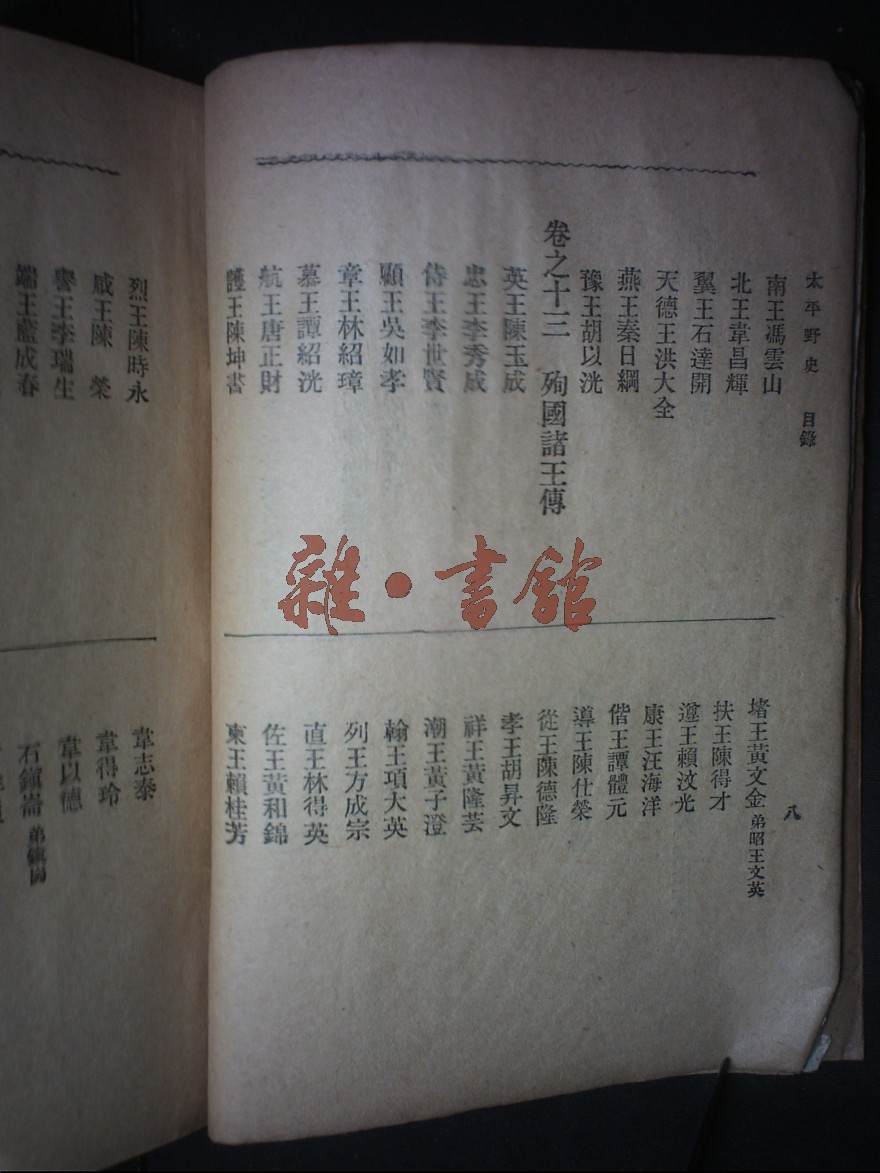 太平野史 目錄
八
南王馮雲山
北王韋昌輝
翼王石達開
天德王洪大全
燕王秦日綱
豫王胡以洸
卷之十三 殉國諸王傳
英王陳玉成
忠王李秀成
侍王李世賢
顧王吳如孝
章王林紹璋
慕王譚紹洸
航王唐正財
護王陳坤書
堵王黃文金 弟昭王文英
扶王陳得才
遵王賴汶光
康王汪海洋
偕王譚體元
導王陳仕榮
從王陳德隆
孝王胡昇文
祥王黃隆芸
潮王黃子澄
翰王項大英
列王方成宗
直王林得英
佐王黃和錦
東王賴桂芳
烈王陳時永
戚王陳 榮
譽王李瑞生
端王藍成春
韋志泰
韋得玲
韋以德
石鎮崙 弟鎮
雜·書館